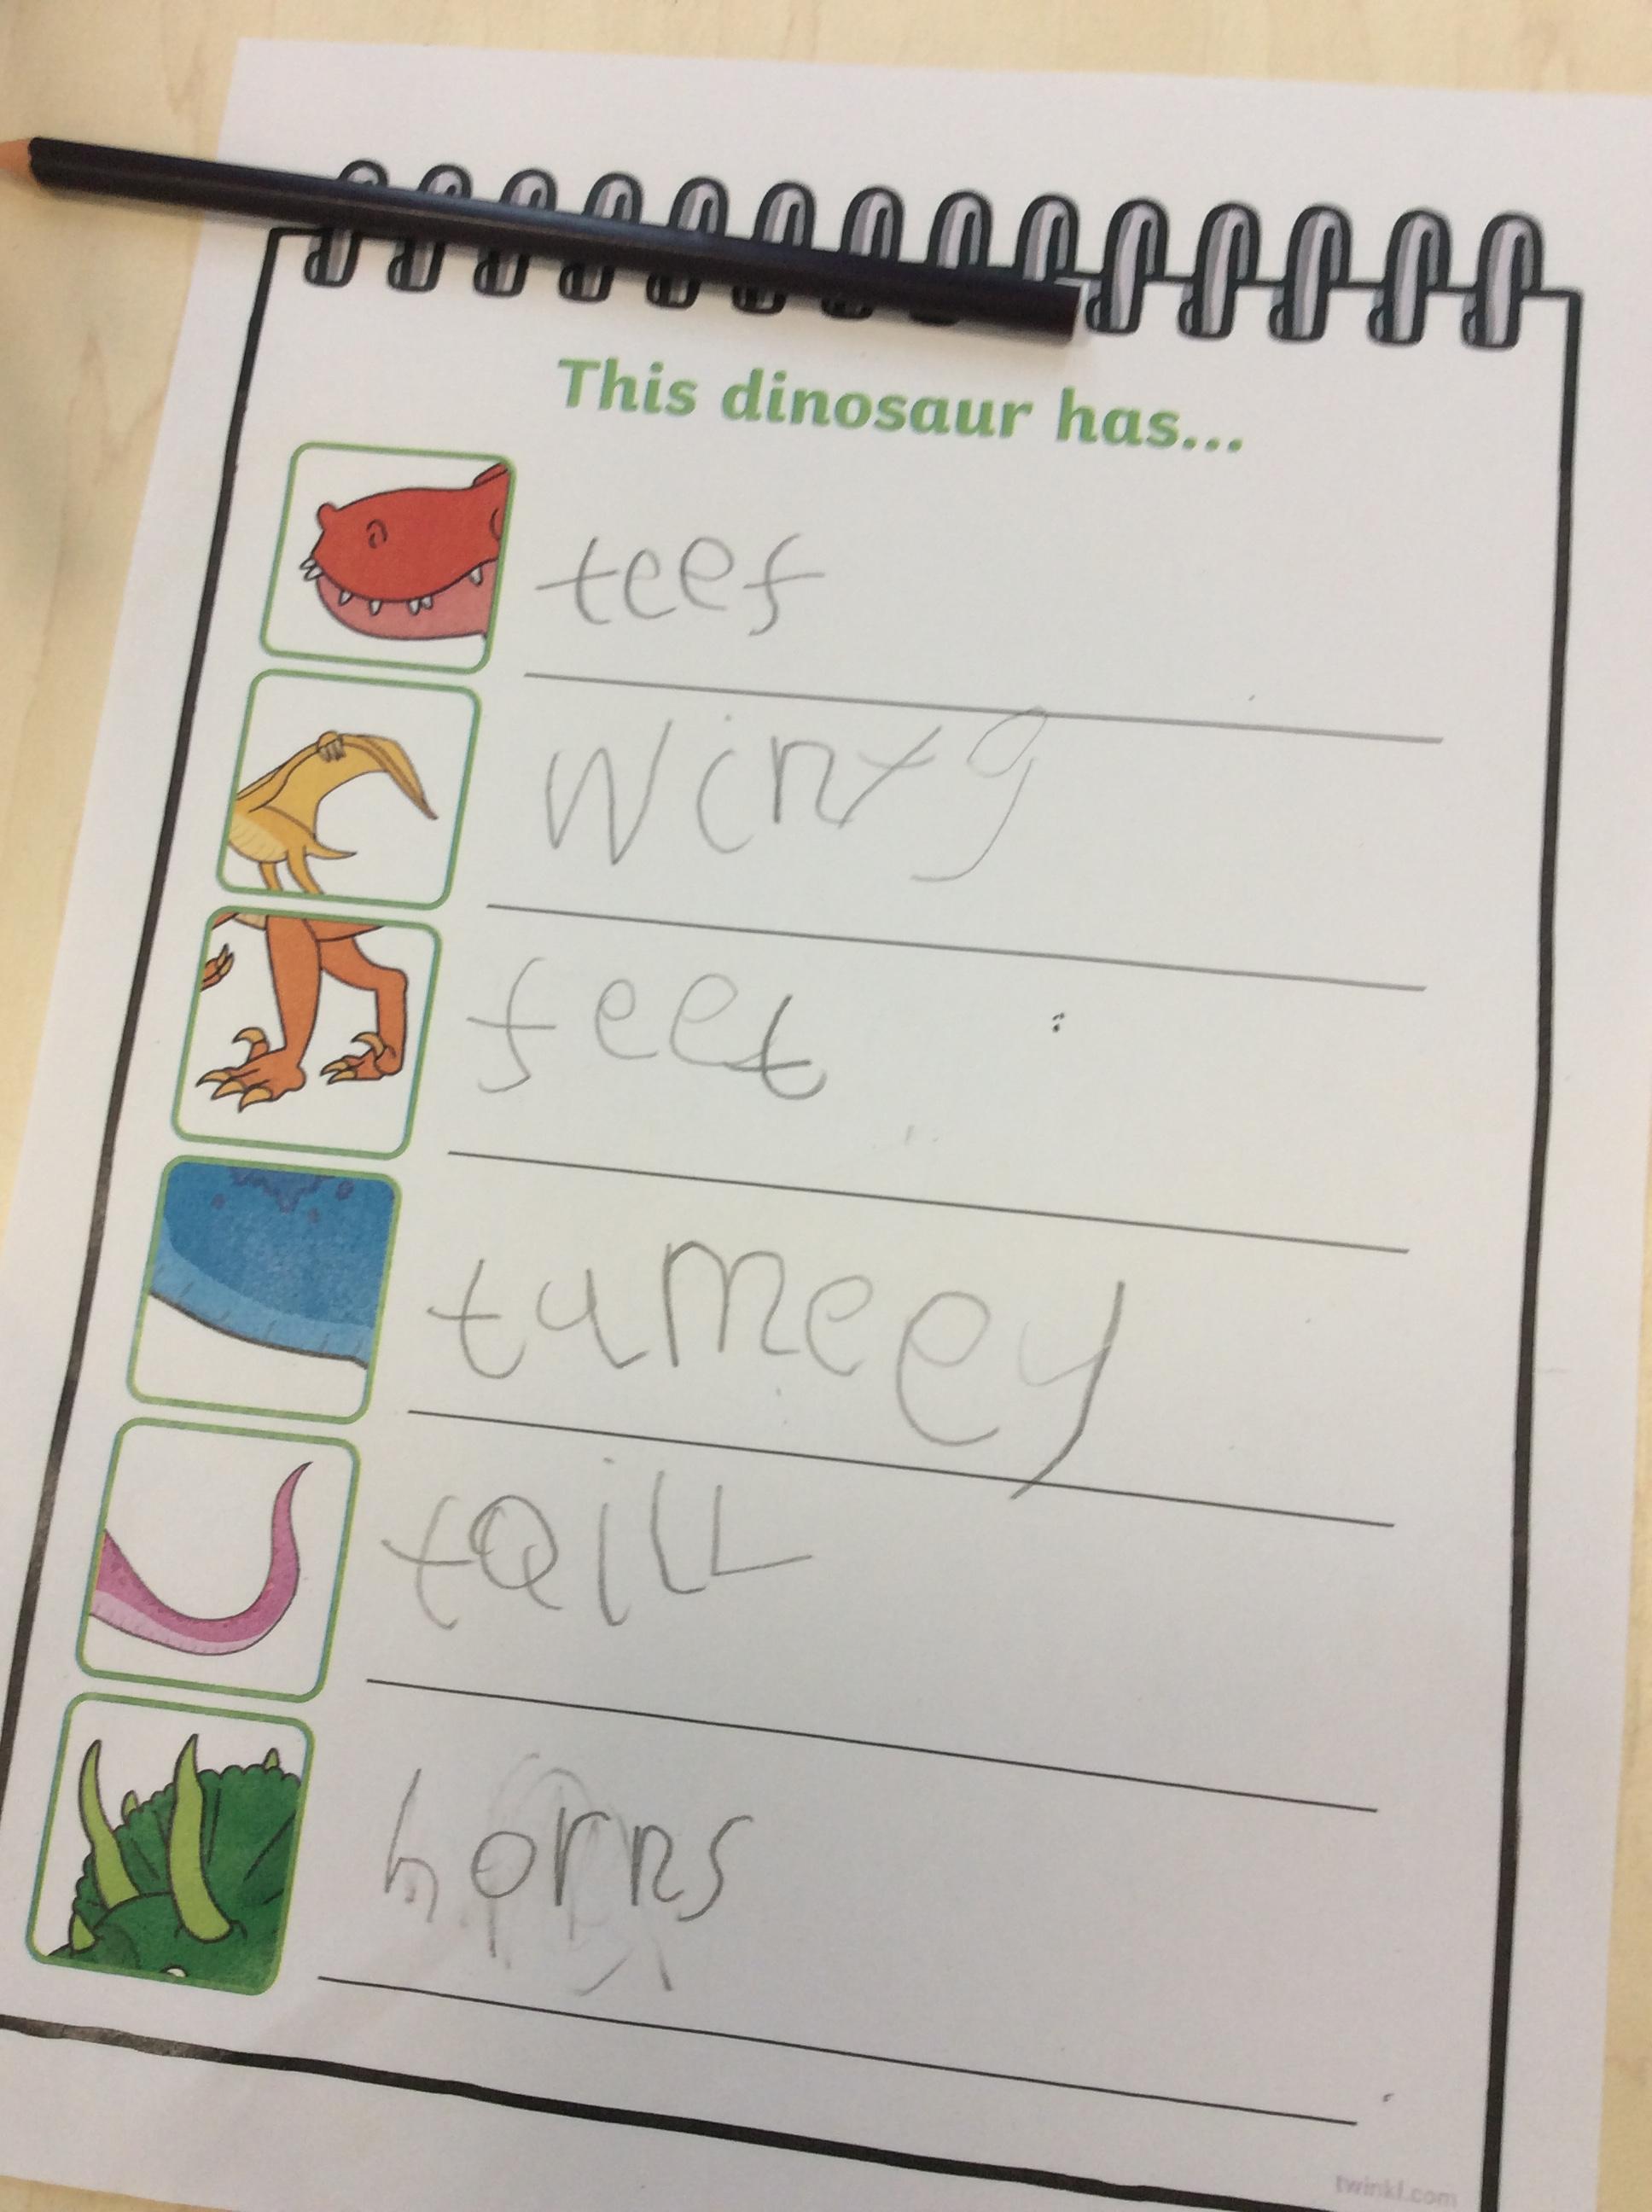 This dinosaur has...
teef
winxg
feet
tumeey
taill
horns
twinkl.com